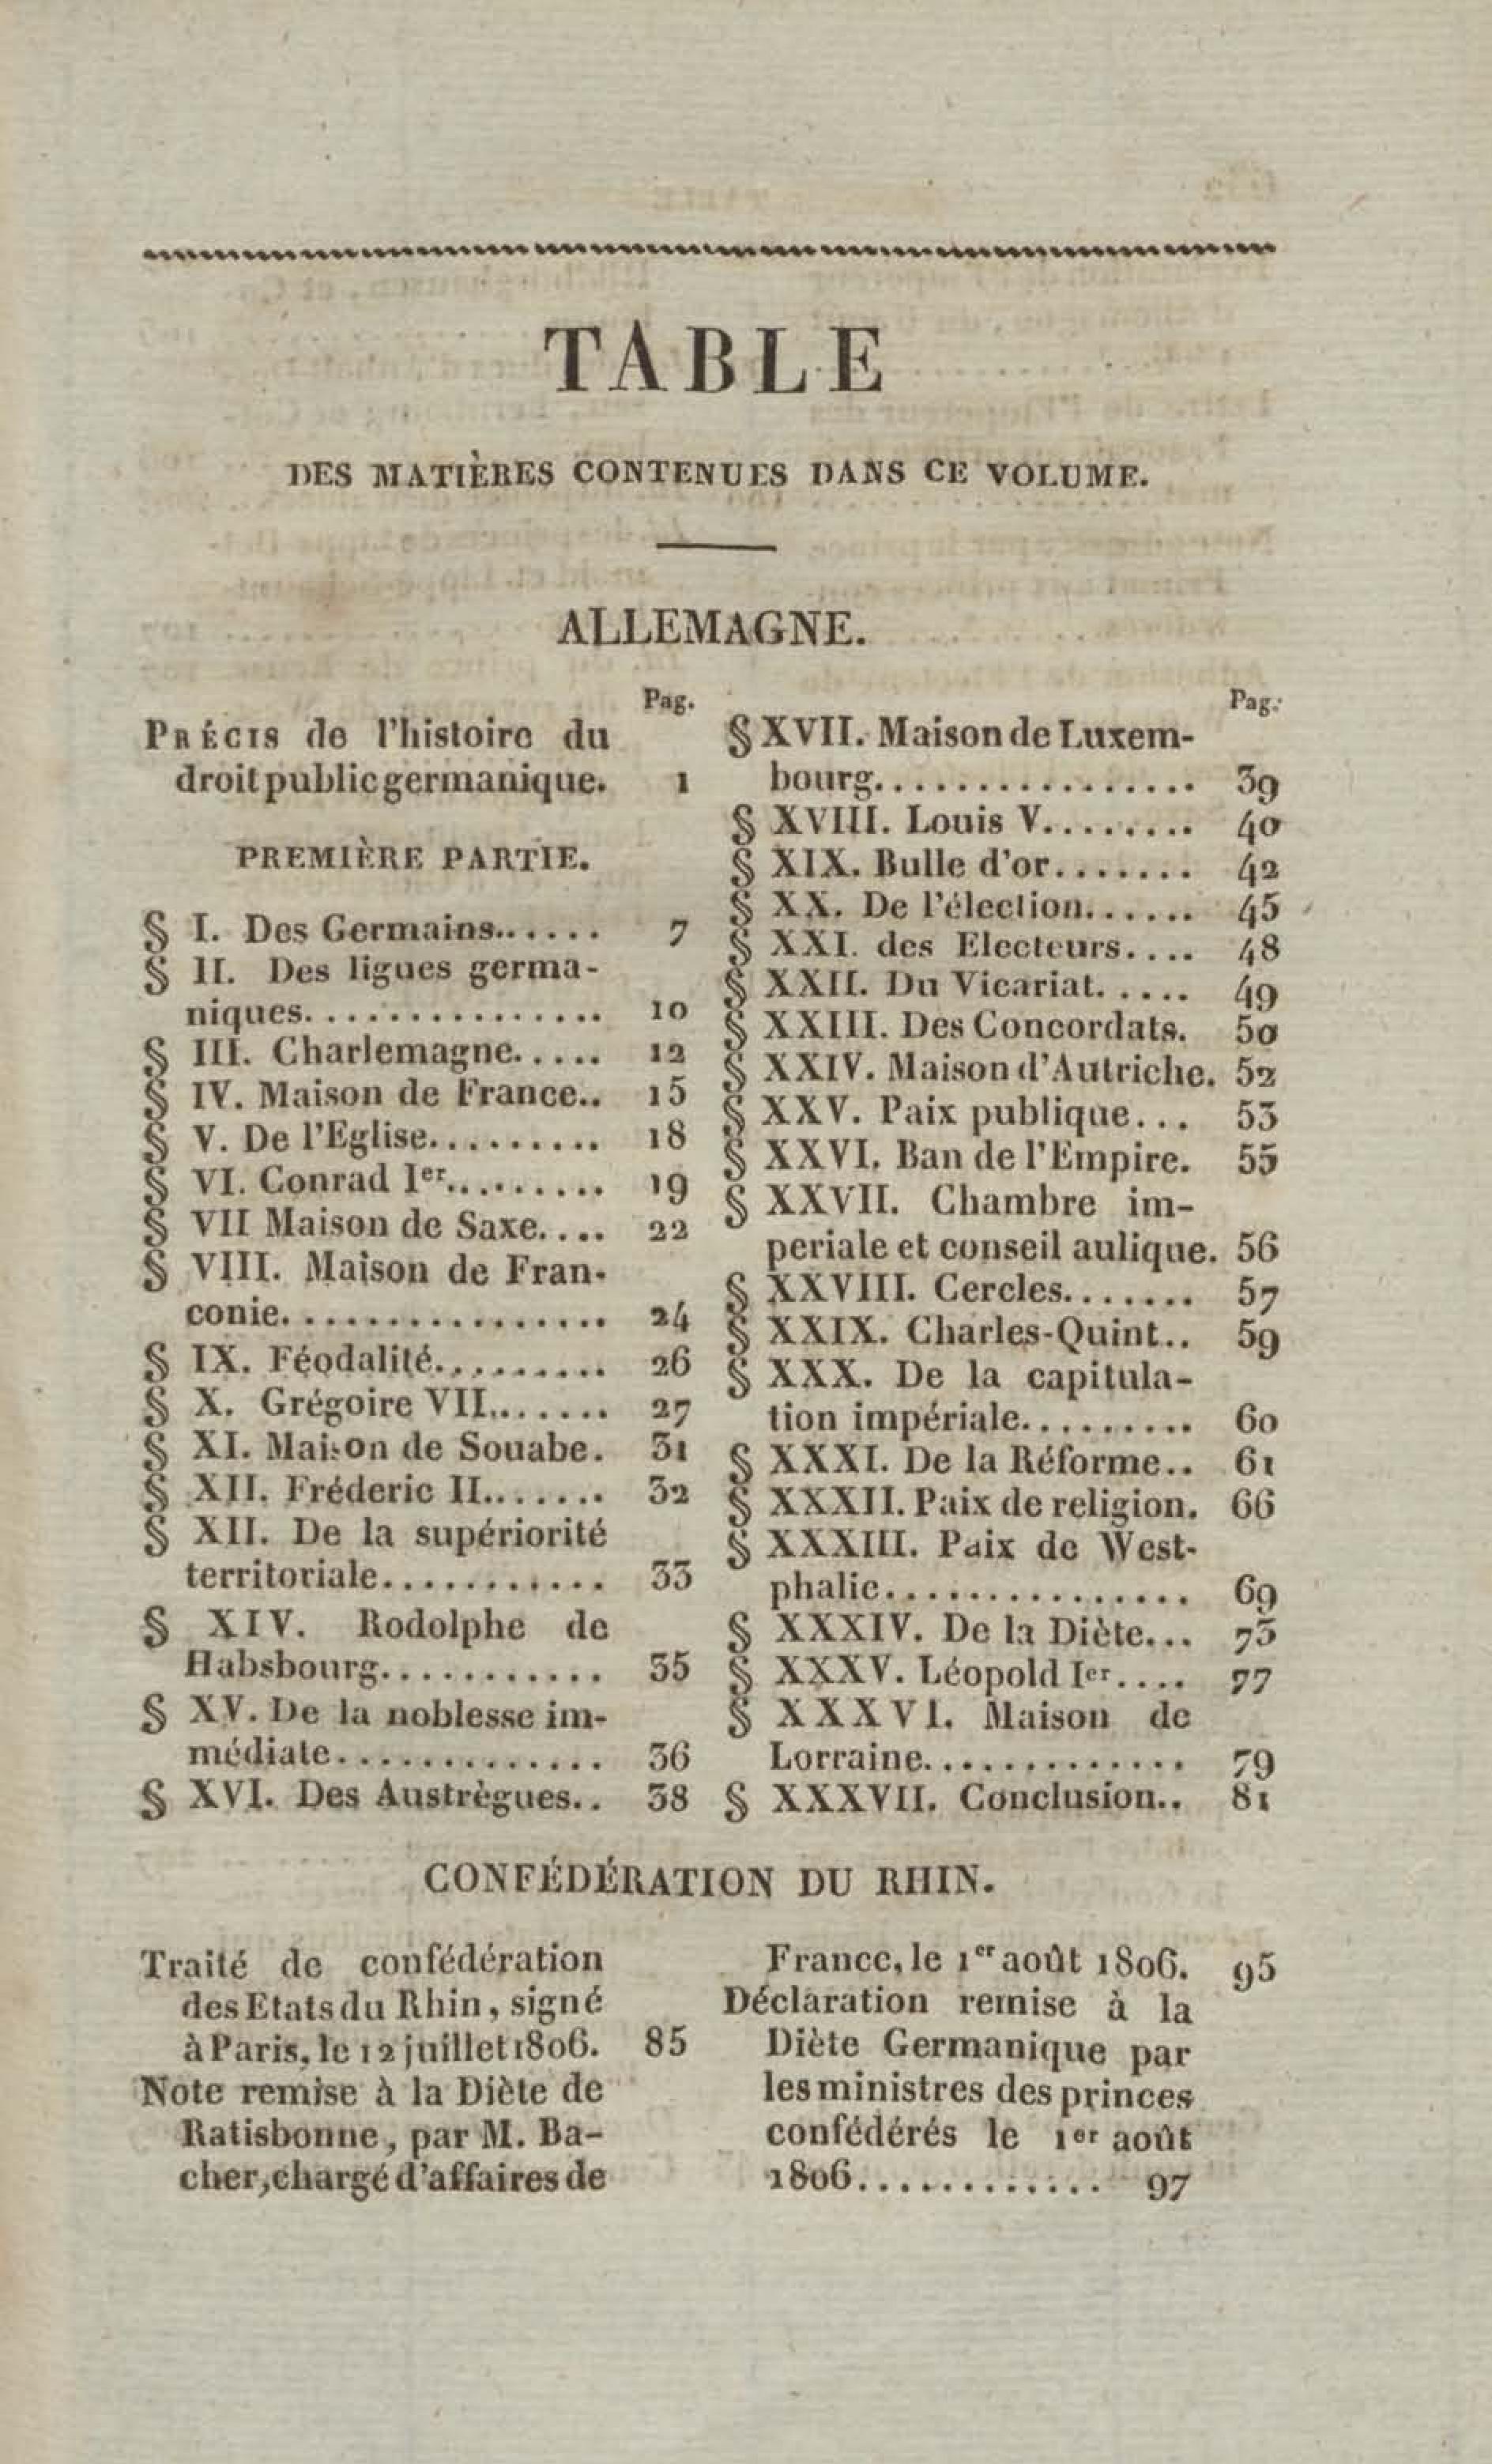 TABLE
DES MATIÈRES CONTENUES DANS CE VOLUME.
ALLEMAGNE.
Pag.
PRÉCIS de l'histoire du
droit public germanique. 1
PREMIÈRE PARTIE.
§ I. Des Germains...... 7
§ II. Des ligues germa-
niques............... 10
§ III. Charlemagne..... 12
§ IV. Maison de France.. 15
§ V. De l'Eglise......... 18
§ VI. Conrad Ier......... 19
§ VII Maison de Saxe.... 22
§ VIII. Maison de Fran-
conie................ 24
§ IX. Féodalité......... 26
§ X. Grégoire VII....... 27
§ XI. Maison de Souabe. 31
§ XII. Fréderic II....... 32
§ XII. De la supériorité
territoriale........... 33
§ XIV. Rodolphe de
Habsbourg........... 35
§ XV. De la noblesse im-
médiate............. 36
§ XVI. Des Austrègues.. 38
Pag.
§ XVII. Maison de Luxem-
bourg................ 39
§ XVIII. Louis V........ 40
§ XIX. Bulle d'or....... 42
§ XX. De l'élection...... 45
§ XXI. des Electeurs.... 48
§ XXII. Du Vicariat..... 49
§ XXIII. Des Concordats. 50
§ XXIV. Maison d'Autriche. 52
§ XXV. Paix publique... 53
§ XXVI. Ban de l'Empire. 55
§ XXVII. Chambre im-
periale et conseil aulique. 56
§ XXVIII. Cercles....... 57
§ XXIX. Charles-Quint.. 59
§ XXX. De la capitula-
tion impériale......... 60
§ XXXI. De la Réforme.. 61
§ XXXII. Paix de religion. 66
§ XXXIII. Paix de West-
phalie............... 69
§ XXXIV. De la Diète... 73
§ XXXV. Léopold Ier.... 77
§ XXXVI. Maison de
Lorraine............. 79
§ XXXVII. Conclusion.. 81
CONFÉDÉRATION DU RHIN.
Traité de confédération
des Etats du Rhin, signé
à Paris, le 12 juillet 1806. 85
Note remise à la Diète de
Ratisbonne, par M. Ba-
cher, chargé d'affaires de
France, le 1er août 1806. 95
Déclaration remise à la
Diète Germanique par
les ministres des princes
confédérés le 1er août
1806............ 97